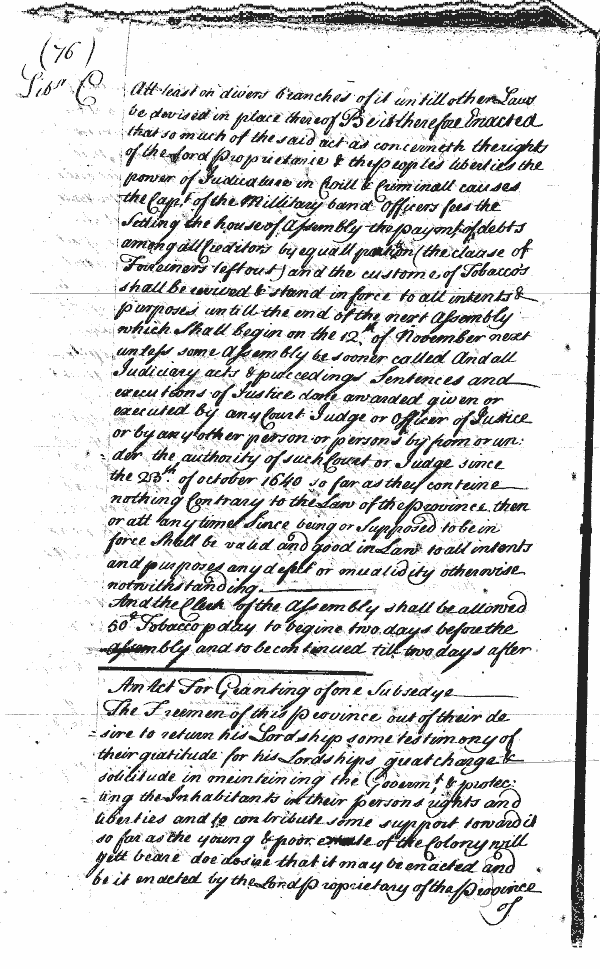 (76)
Libr C
Att least on divers branches of it untill other Laws
be devised in place thereof Be it therefore Enacted
that so much of the said act as concerneth the rights
of the Lord Proprietarie & the peoples liberties the
power of Judicature in Civill & Criminall causes
the Capt of the Millitary band Officers fees the
Setling the house of Assembly the paymt of debts
among all Creditors by equall portion (the clause of
Foreiners left out) and the custome of Tobacco's
shall be revived & stand in force to all intents &
purposes untill the end of the next Assembly
which Shall begin on the 12th of November next
unless some Assembly be sooner called And all
Judiciary acts & proceedings Sentences and
executions of Justice done awarded given or
executed by any Court Judge or Officer of Justice
or by any other person or persons by from or un:
der the authority of such Court or Judge since
the 23th of october 1640 so far as they conteine
nothing Contrary to the Law of the Province then
or att any time Since being or Supposed to be in
force Shall be valid and good in Law to all intents
and purposes any defect or invalidity otherwise
notwithstanding
And the Clerk of the Assembly shall be allowed
50d Tobacco p day to begine two days before the
Assembly and to be continued till two days after
An Act For Granting of one Subsedye
The Freemen of this Province out of their de
sire to return his Lordship some testimony of
their gratitude for his Lordships great charge &
solicitude in meintening the Governmt & protec:
ting the Inhabitants in their persons rights and
liberties and to contribute some support toward it
so far as the young & poor estate of the Colony will
yett beare doe desire that it may be enacted and
be it enacted by the Lord Proprietary of the Province
of